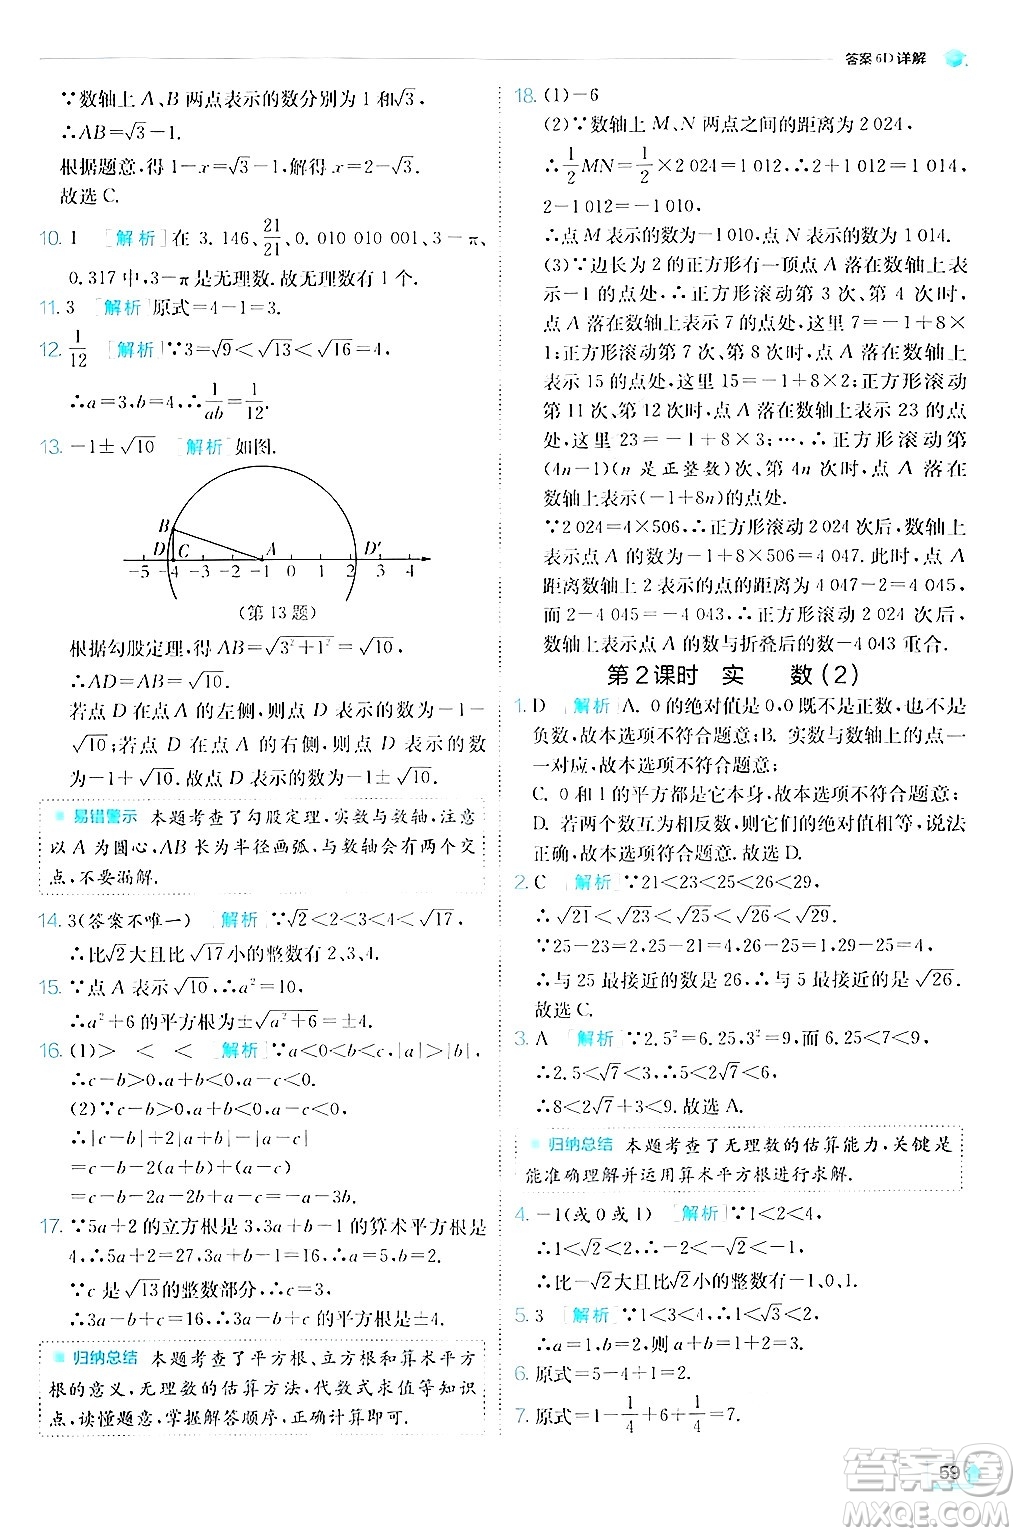 答案 6D 详解
∵数轴上 A、B 两点表示的数分别为 1 和√3,
∴AB=√3-1.
根据题意,得 1-x=√3-1,解得 x=2-√3.
故选 C.
10. 1 [解析]在 3. 146、21/21、0. 010 010 001、3-π、
0. 317 中,3-π是无理数.故无理数有 1 个.
11. 3 [解析]原式=4-1=3.
12. 1/12 [解析]∵3=√9<√13<√16=4,
∴a=3,b=4,∴1/ab=1/12.
13. -1±√10 [解析]如图.
B
D C A D′
-5 -4 -3 -2 -1 0 1 2 3 4
(第 13 题)
根据勾股定理,得 AB=√(3²+1²)=√10,
∴AD=AB=√10.
若点 D 在点 A 的左侧,则点 D 表示的数为-1-
√10;若点 D 在点 A 的右侧,则点 D 表示的数为
-1+√10.故点 D 表示的数为-1±√10.
易错警示 本题考查了勾股定理,实数与数轴,注意
以 A 为圆心,AB 长为半径画弧,与数轴会有两个交
点,不要漏解.
14. 3(答案不唯一) [解析]∵√2<2<3<4<√17,
∴比√2大且比√17小的整数有 2、3、4.
15. ∵点 A 表示√10,∴a²=10,
∴a²+6 的平方根为±√(a²+6)=±4.
16. (1)> < < [解析]∵a<0<b<c,|a|>|b|,
∴c-b>0,a+b<0,a-c<0.
(2)∵c-b>0,a+b<0,a-c<0,
∴|c-b|+|a+b|-|a-c|
=c-b+(-a-b)-(c-a)
=c-b-a-b-c+a
=-2b.
17. ∵5a+2 的立方根是 3,3a+b-1 的算术平方根是
4,∴5a+2=27,3a+b-1=16,∴a=5,b=2.
∵c 是√13的整数部分,∴c=3,
∴3a-b+c=16,∴3a-b+c 的平方根是±4.
归纳总结 本题考查了平方根、立方根和算术平方
根的意义,无理数的估算方法,代数式求值等知识
点,读懂题意,掌握解答顺序,正确计算即可.
18. (1)-6
(2)∵数轴上 M、N 两点之间的距离为 2 024,
∴1/2MN=1/2×2 024=1 012,∴2+1 012=1 014,
2-1 012=-1 010,
∴点 M 表示的数为-1 010,点 N 表示的数为1 014.
(3)∵边长为 2 的正方形有一顶点 A 落在数轴上表
示-1 的点处,∴当正方形滚动第 3 次、第 4 次时,
点 A 落在数轴上表示 7 的点处,这里 7=-1+8×
1;正方形滚动第 7 次、第 8 次时,点 A 落在数轴上
表示 15 的点处,这里 15=-1+8×2;正方形滚动
第 11 次、第 12 次时,点 A 落在数轴上表示 23 的点
处,这里 23=-1+8×3;…,∴正方形滚动第
(4n-1)(n 是正整数)次、第 4n 次时,点 A 落在
数轴上表示(-1+8n)的点处.
∵2 024=4×506,∴正方形滚动 2 024 次后,数轴上
表示点 A 的数为-1+8×506=4 047.此时,点 A
距离数轴上 2 表示的点的距离为 4 047-2=4 045,
而 2-4 045=-4 043,∴正方形滚动 2 024 次后,
数轴上表示点 A 的数与折叠后的数-4 043 重合.
第 2 课时 实 数(2)
1. D [解析]A. 0 的绝对值是 0,0 既不是正数,也不是
负数,故本选项不符合题意;B. 实数与数轴上的点一
一对应,故本选项不符合题意;
C. 0 和 1 的平方都是它本身,故本选项不符合题意;
D. 若两个数互为相反数,则它们的绝对值相等,说法
正确,故本选项符合题意.故选 D.
2. C [解析]∵21<23<25<26<29,
∴√21<√23<5<√26<√29.
∵25-23=2,26-25=1,29-25=4,
∴与 25 最接近的数是 26,∴与 5 最接近的是√26.
故选 C.
3. A [解析]∵2.5²=6.25,3²=9,而 6.25<7<9,
∴2.5<√7<3,∴5<2√7<6,
∴8<2√7+3<9.故选 A.
归纳总结 本题考查了无理数的估算能力,关键是
能准确理解并运用算术平方根进行求解.
4. -1(或 0 或 1) [解析]∵1<2<4,
∴1<√2<2,∴-2<-√2<-1,
∴比-√2大且比√2小的整数有-1、0、1.
5. 3 [解析]∵1<3<4,∴1<√3<2,
∴a=1,b=2,∴a+b=1+2=3.
6. 原式=5-4+1=2.
7. 原式=1-1/4+6+1/4=7.
59
答案圈
MXQE.COM